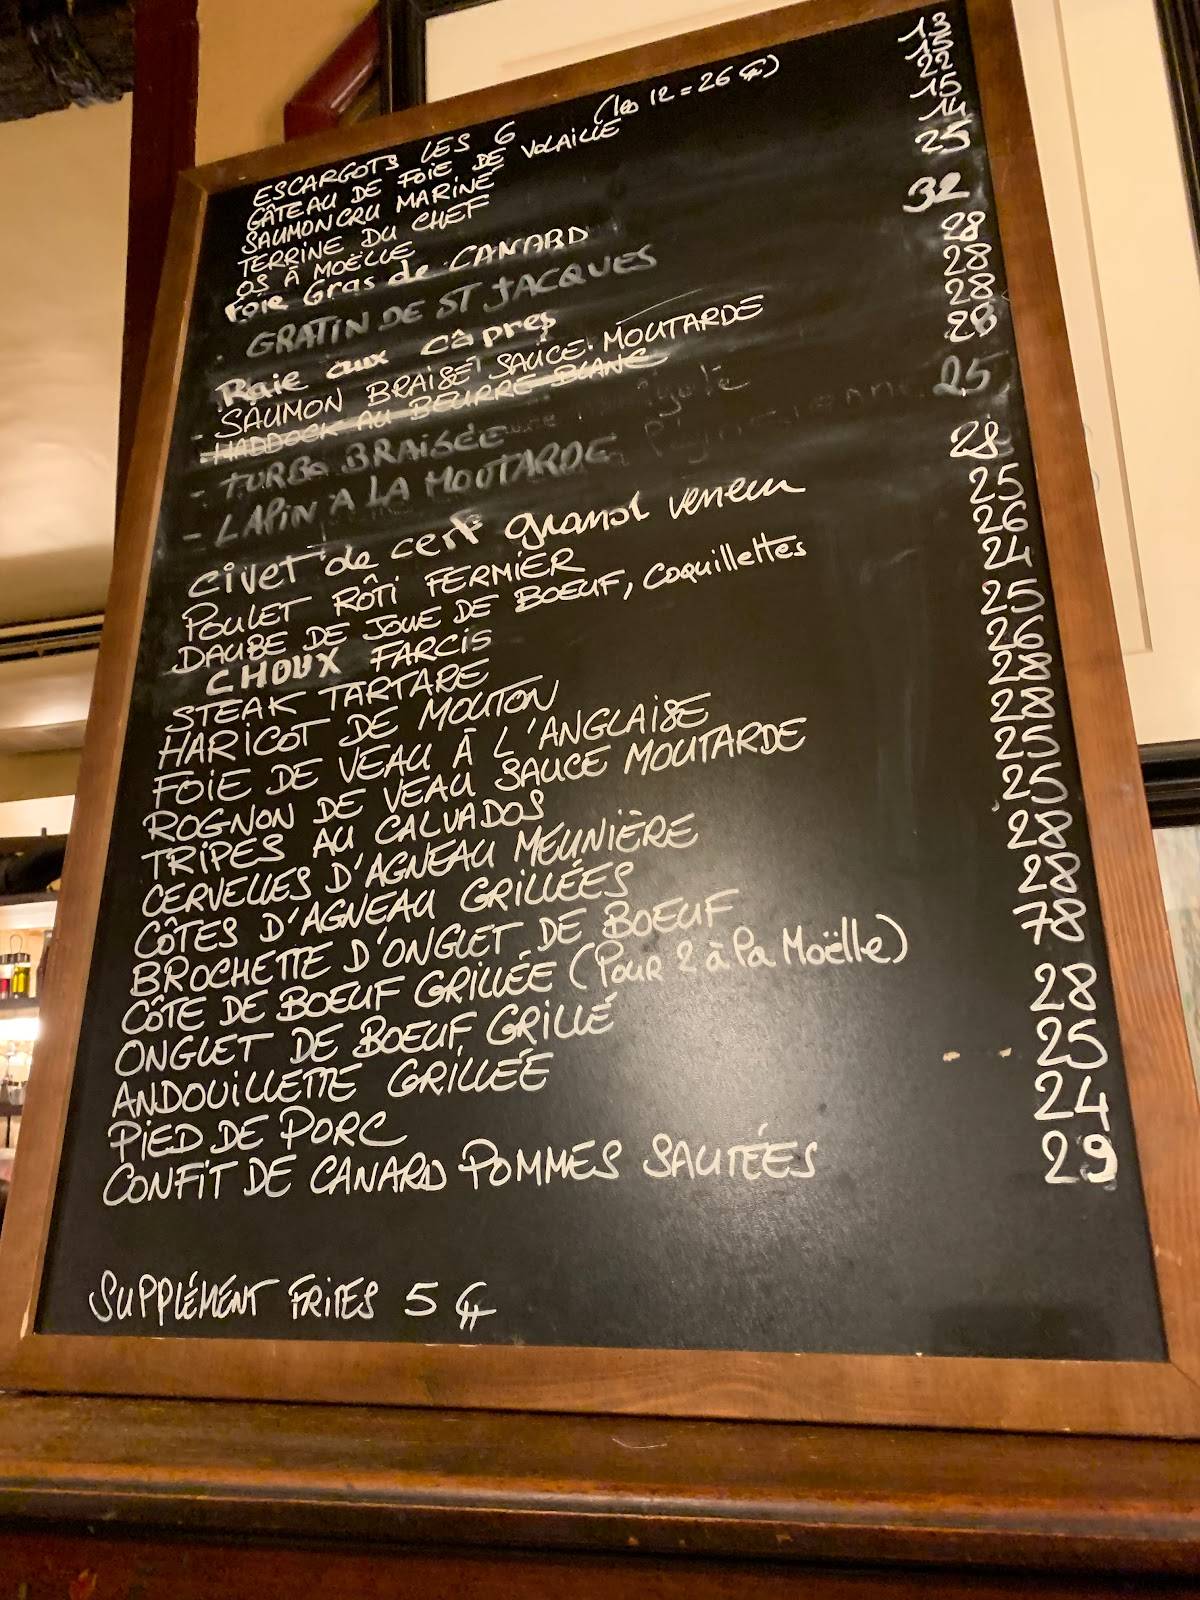 ESCARGOTS LES 6 (les 12 = 26 €) 13
GÂTEAU DE FOIE DE VOLAILLE 22
SAUMON CRU MARINÉ 15
TERRINE DU CHEF 14
OS À MOËLLE 25
Foie Gras de CANARD 32
- GRATIN DE ST JACQUES 28
Raie aux câpres 28
- SAUMON BRAISÉ SAUCE MOUTARDE 28
- HADDOCK AU BEURRE BLANC 28
- TURBO BRAISÉE
- LAPIN A LA MOUTARDE 25
civet de cerf grand veneur 28
POULET RÔTI FERMIER 25
DAUBE DE JOUE DE BOEUF, coquillettes 26
CHOUX FARCIS 24
STEAK TARTARE 25
HARICOT DE MOUTON 26
FOIE DE VEAU À L'ANGLAISE 28
ROGNON DE VEAU SAUCE MOUTARDE 28
TRIPES AU CALVADOS 25
CERVELLES D'AGNEAU MEUNIÈRE 25
CÔTES D'AGNEAU GRILLÉES 28
BROCHETTE D'ONGLET DE BOEUF 28
CÔTE DE BOEUF GRILLÉE (Pour 2 à la Moëlle) 78
ONGLET DE BOEUF GRILLÉ 28
ANDOUILLETTE GRILLÉE 25
PIED DE PORC 24
CONFIT DE CANARD POMMES SAUTÉES 29
SUPPLÉMENT FRITES 5 €